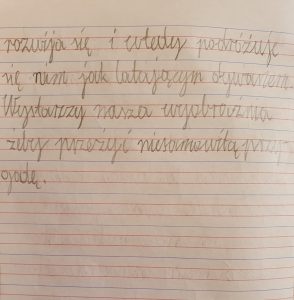 rozwija się i wtedy podróżuje
się nim jak latającym dywanem.
Wystarczy nasza wyobraźnia
żeby przeżyć niesamowitą przy-
godę.